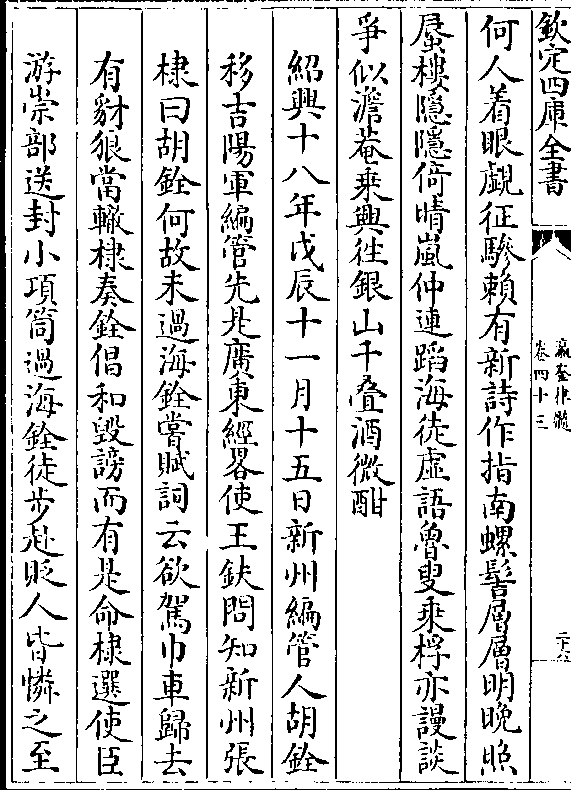 欽定四庫全書
瀛奎律髓
卷四十三
何人着眼覷征驂賴有新詩作指南螺髻層層明晚照
蜃樓隱隱倚晴嵐仲連蹈海徒虛語魯叟乘桴亦謾談
爭似澹菴乘興往銀山千叠酒微酣
紹興十八年戊辰十一月十五日新州編管人胡銓
移吉陽軍編管先是廣東經畧使王鈇問知新州張
棣曰胡銓何故未過海銓嘗賦詞云欲駕巾車歸去
有豺狼當轍棣奏銓倡和毀謗而有是命棣選使臣
游崇部送封小項筒過海銓徒步赴貶人皆憐之至